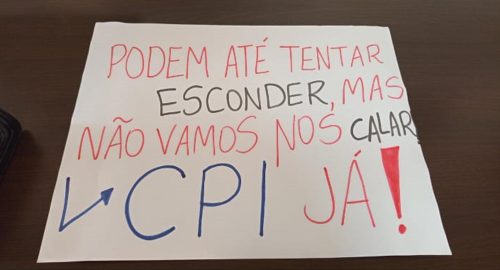 PODEM ATÉ TENTAR
ESCONDER, MAS
NÃO VAMOS NOS CALAR!
CPI JÁ!